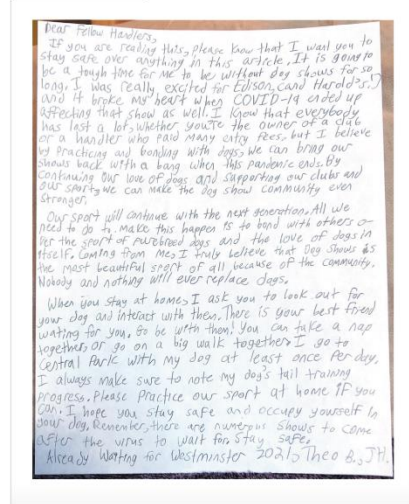 Dear Fellow Handlers,
If you are reading this, please know that I want you to
stay safe over anything in this article. It is going to
be a tough time for me to be without dog shows for so
long. I was really excited for Edison, and Harold's.
and it broke my heart when COVID-19 ended up
affecting that show as well. I know that everybody
has lost a lot, whether you're the owner of a club
or a handler who paid many entry fees, but I believe
by Practicing and bonding with dogs, we can bring our
shows back with a bang when this pandemic ends. By
Continuing our love of dogs and supporting our clubs and
our sport, we can make the dog show community even
Stronger.
Our sport will continue with the next generation. All we
need to do to make this happen is to bond with others o-
ver the sport of purebreed dogs and the love of dogs in
itself. Coming from me, I truly believe that Dog Shows is
the most beautiful sport of all because of the community.
Nobody and nothing will ever replace dogs.
When you stay at home, I ask you to look out for
your dog and interact with them. There is your best friend
waiting for you, Go be with them! You can take a nap
together, or go on a big walk together. I go to
Central Park with my dog at least once per day.
I always make sure to note my dog's tail training
progress. Please Practice our sport at home if you
can. I hope you stay safe and occupy yourself in
your dog. Remember, there are numerous shows to come
after the virus to wait for. Stay safe.
Already Waiting for Westminster 2021, Theo B., JH.